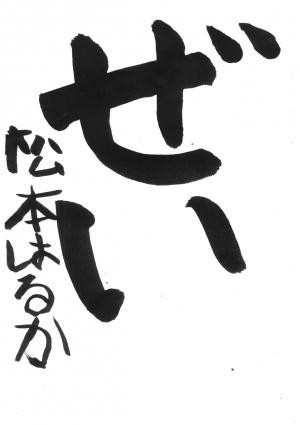 ぜい
松本はるか